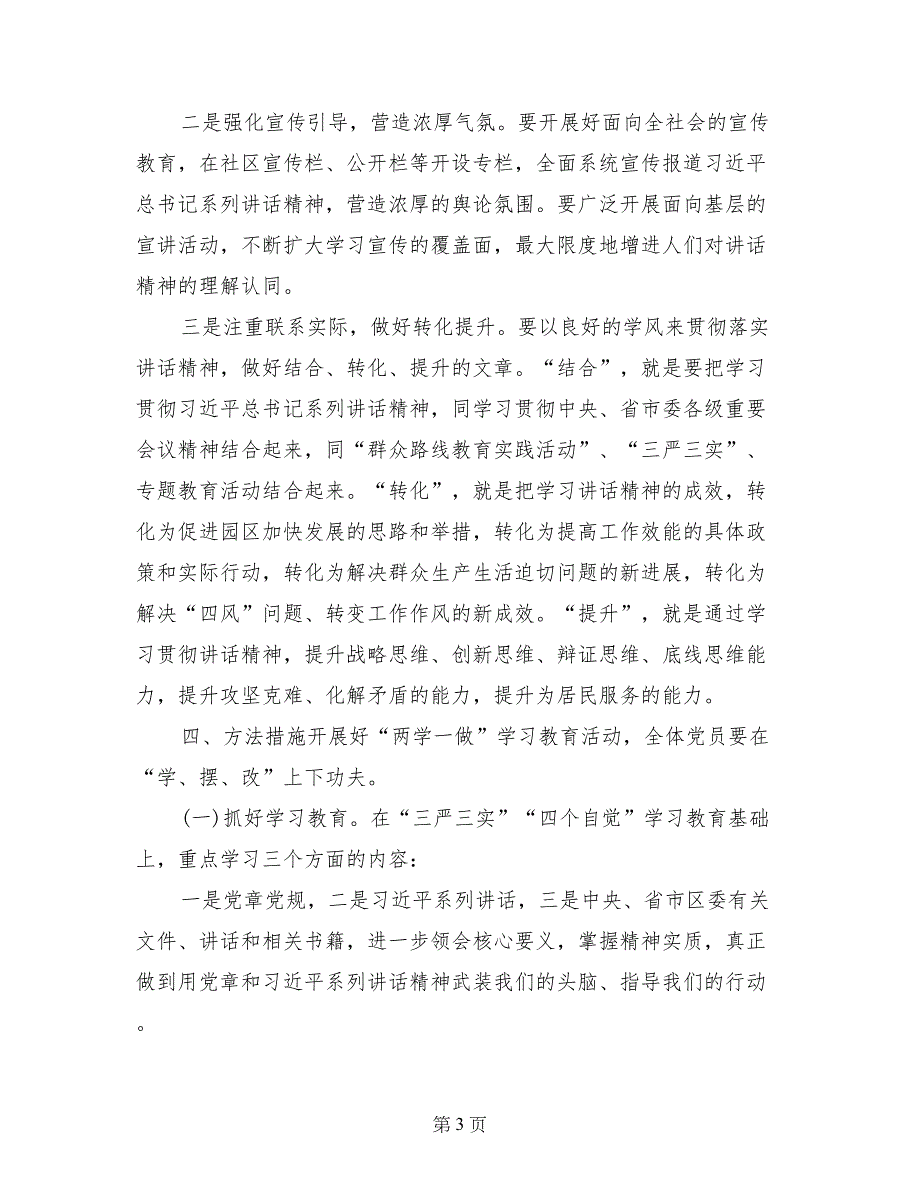 二是强化宣传引导，营造浓厚气氛。要开展好面向全社会的宣传
教育，在社区宣传栏、公开栏等开设专栏，全面系统宣传报道习近平
总书记系列讲话精神，营造浓厚的舆论氛围。要广泛开展面向基层的
宣讲活动，不断扩大学习宣传的覆盖面，最大限度地增进人们对讲话
精神的理解认同。
三是注重联系实际，做好转化提升。要以良好的学风来贯彻落实
讲话精神，做好结合、转化、提升的文章。“结合”，就是要把学习
贯彻习近平总书记系列讲话精神，同学习贯彻中央、省市委各级重要
会议精神结合起来，同“群众路线教育实践活动”、“三严三实”、
专题教育活动结合起来。“转化”，就是把学习讲话精神的成效，转
化为促进园区加快发展的思路和举措，转化为提高工作效能的具体政
策和实际行动，转化为解决群众生产生活迫切问题的新进展，转化为
解决“四风”问题、转变工作作风的新成效。“提升”，就是通过学
习贯彻讲话精神，提升战略思维、创新思维、辩证思维、底线思维能
力，提升攻坚克难、化解矛盾的能力，提升为居民服务的能力。
四、方法措施开展好“两学一做”学习教育活动，全体党员要在
“学、摆、改”上下功夫。
(一)抓好学习教育。在“三严三实”“四个自觉”学习教育基础
上，重点学习三个方面的内容：
一是党章党规，二是习近平系列讲话，三是中央、省市区委有关
文件、讲话和相关书籍，进一步领会核心要义，掌握精神实质，真正
做到用党章和习近平系列讲话精神武装我们的头脑、指导我们的行动
。
第 3 页